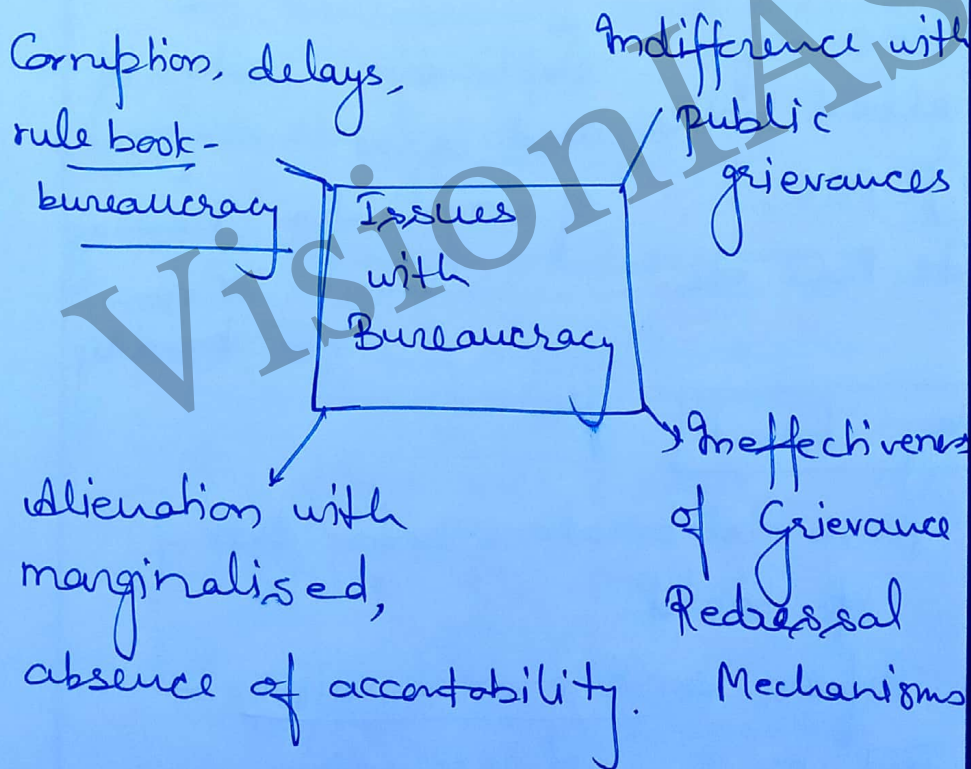 Corruption, delays,
rule book-
bureaucracy
Indifference with
public
grievances
Issues
with
Bureaucracy
Alienation with
marginalised,
absence of accontability.
Ineffectiveness
of Grievance
Redressal
Mechanisms
VisionIAS